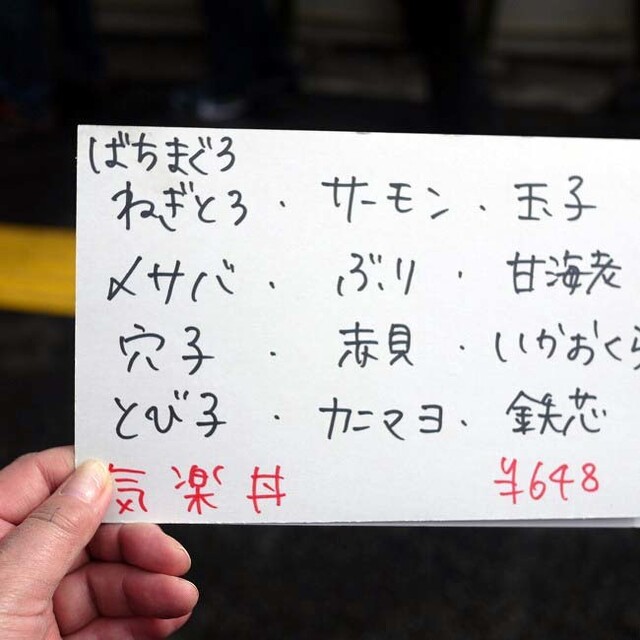 ばちまぐろ
ねぎとろ・サーモン・玉子
〆サバ・ぶり・甘海老
穴子・赤貝・いかおくら
とび子・カニマヨ・鉄芯
気楽丼 ¥648